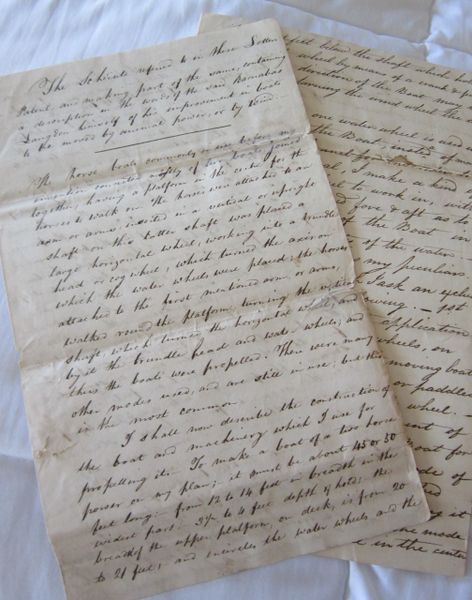 The Schedule refered to in these Letters
Patent, and making part of the same, containing
a description in the words of the said Barnabas
Langdon himself of his improvement in boats
to be moved by animal power, or by wind.
The horse boats commonly in use before my
invention consisted mostly of two boats joined
together, having a platform in the centre for the
horses to walk on. The horses were attached to an
arm or arms, inserted in a vertical or upright
shaft; on this shaft was placed a
large horizontal wheel, working into a trundle
head or cog wheel, which turned the axis on
which the water wheels were placed; the horses
attached to the first mentioned arm, or arms,
walked round the platform, turning the vertical
shaft, which turned the horizontal wheel, and
by it the trundle head and water wheels; and
thus the boats were propelled. There were many
other modes used, and are still in use; but this
is the most common.
I shall now describe the construction of
the boat and machinery which I use for
propelling it. To make a boat of a two horse
power on my plan; it must be about 45 or 50
feet long: from 12 to 14 feet in breadth in the
widest part: 3½ to 4 feet depth of hold: the
breadth of the upper platform, or deck, is from 20
to 21 feet; and encircles the water wheels and the
below the shaft which
wheel by means of a crank &
of the Boat may
wind wheel
one water wheel is used
the Boat, instead of
I make a kind
to work in,
fore & aft so
of the Boat in
of the water.
my peculiar
I ask an exclu
rowing. - not
application
wheels, on
moving boat
or paddle
wheel.
of
Boat for
mode of
ted
it
the mode
in the centre